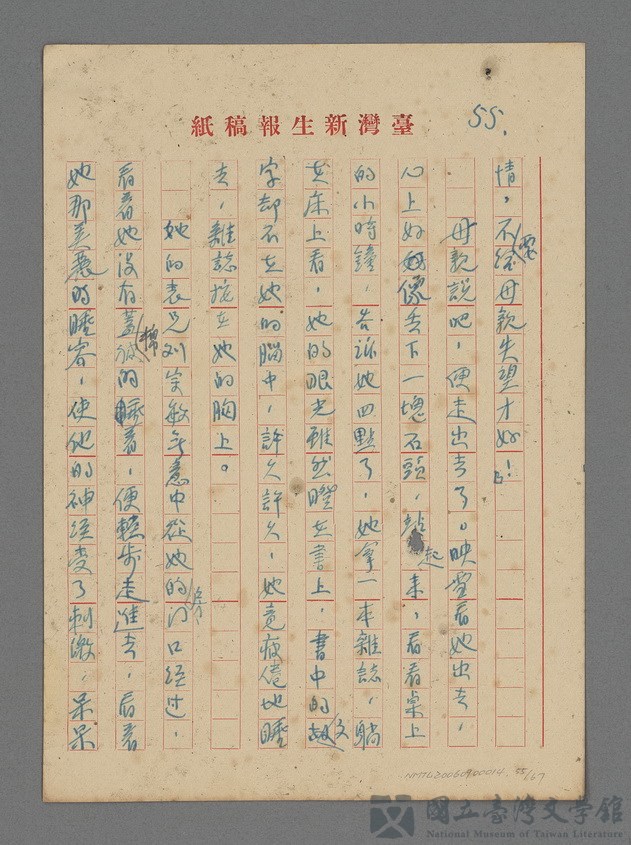 臺灣新生報稿紙
55.
情，不要給母親失望才好！」
母親說吧，便走出去了。映雪看她出去，
心上好像丟下一塊石頭，站起來，看看桌上
的小時鐘，告訴她四點了，她拿一本雜誌，躺
在床上看，她的眼光雖然瞪在書上，書中的文
字却不在她的腦中，許久許久，她竟疲倦地睡
去，雜誌掩在她的胸上。
她的表兄刘宗敏無意中從她的房门口經过，
看着她沒有蓋棉被的睡着，便輕步走進去，看着
她那美麗的睡容，使他的神經受了刺激，呆呆
NMTL20060900014 55/67
國立臺灣文學館
National Museum of Taiwan Literature